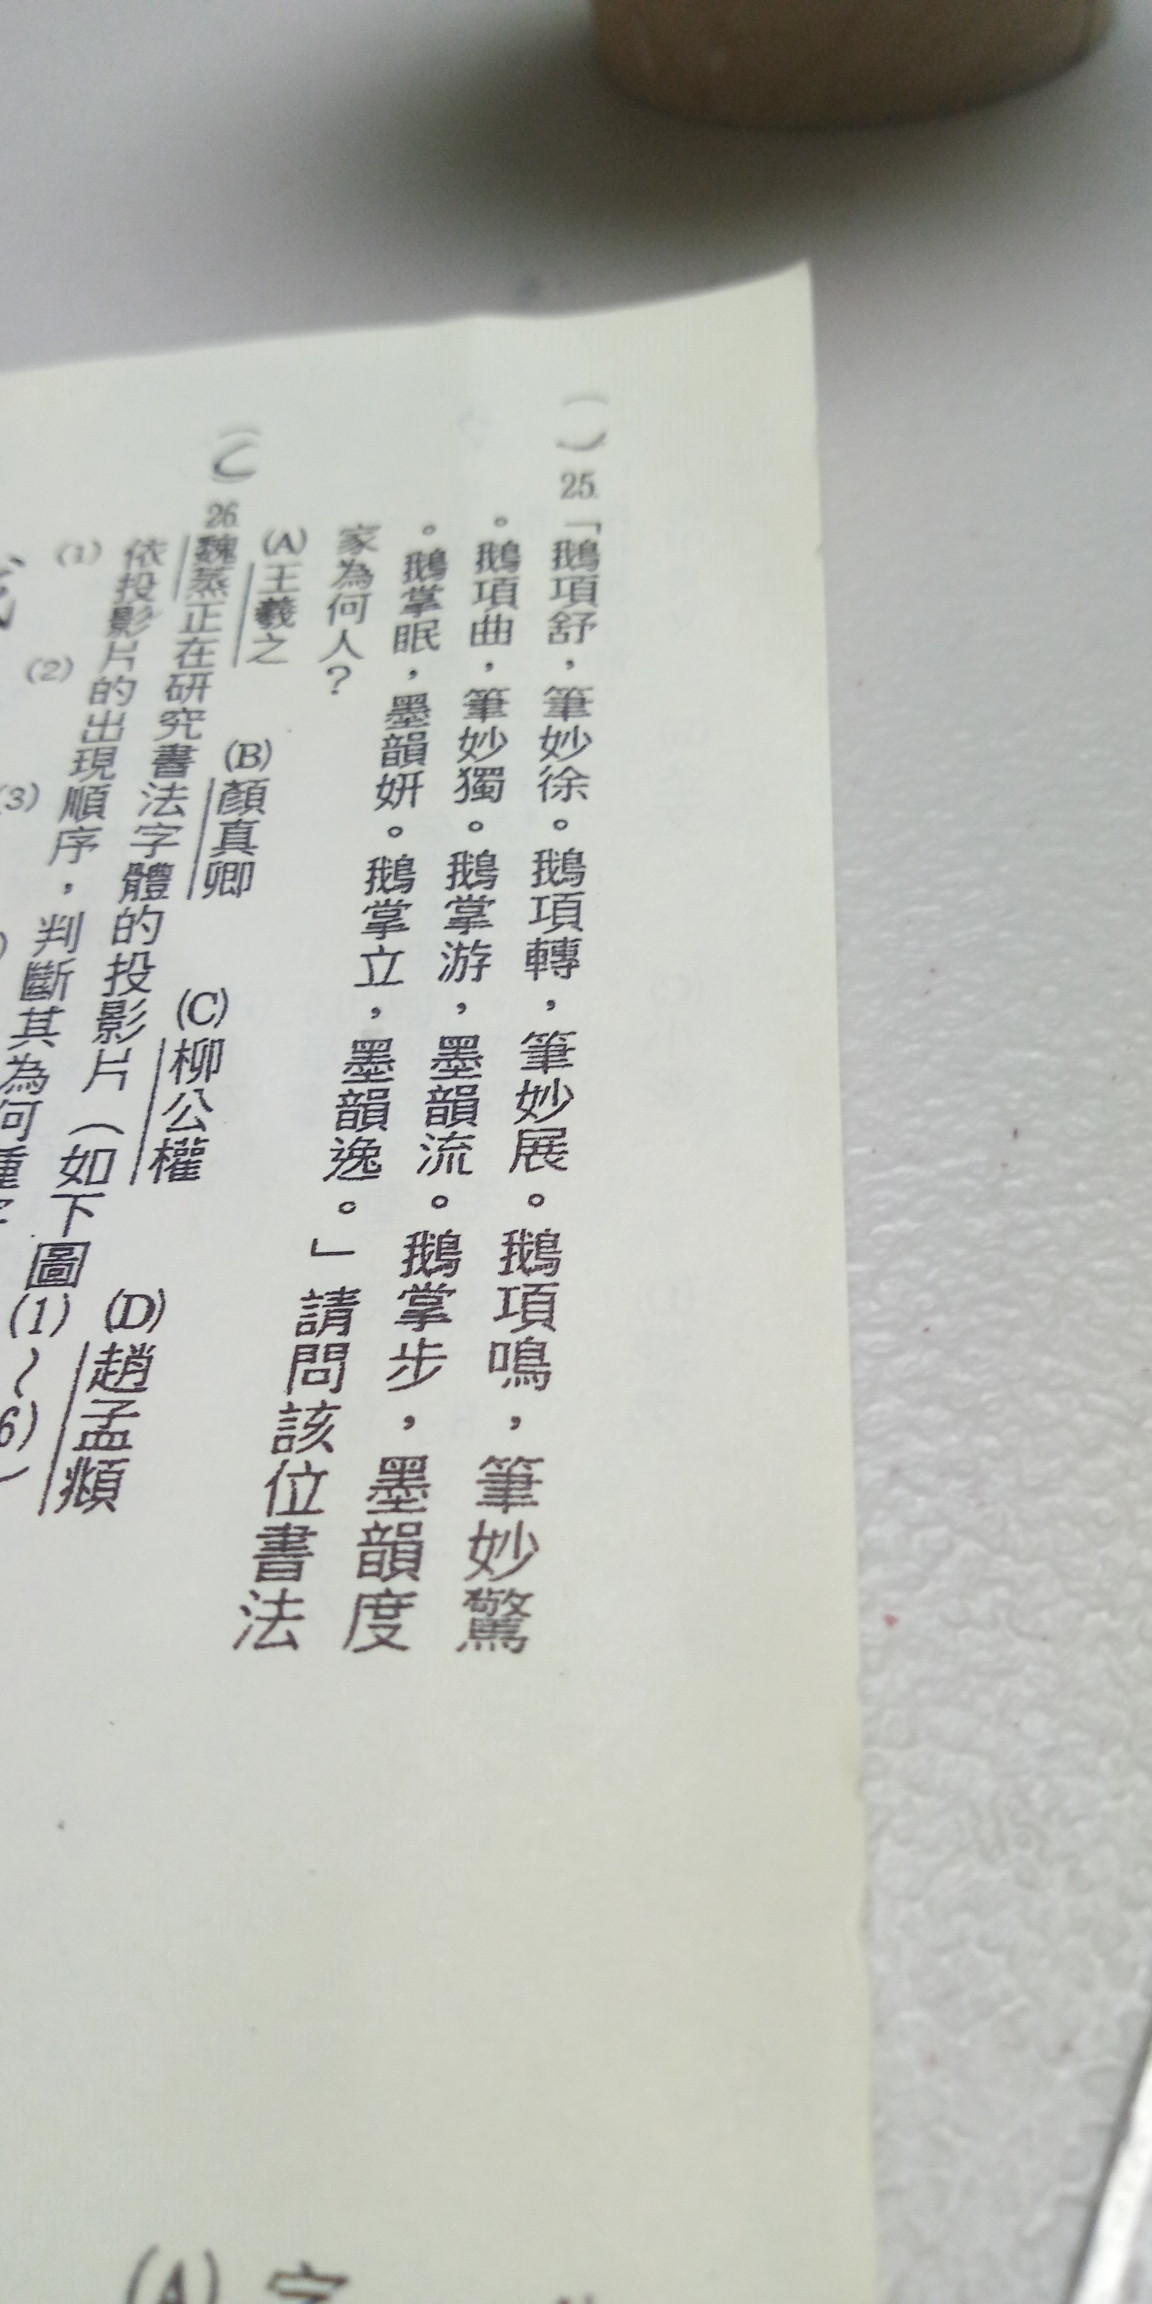 ( )25.「鵝項舒，筆妙徐。鵝項轉，筆妙展。鵝項鳴，筆妙驚
。鵝項曲，筆妙獨。鵝掌游，墨韻流。鵝掌步，墨韻度
。鵝掌眠，墨韻妍。鵝掌立，墨韻逸。」請問該位書法
家為何人？
(A)王羲之 (B)顏真卿 (C)柳公權 (D)趙孟頫
26.魏蒸正在研究書法字體的投影片（如下圖(1)～(6)
依投影片的出現順序，判斷其為何種字
(1) (2) (3)
(A)字